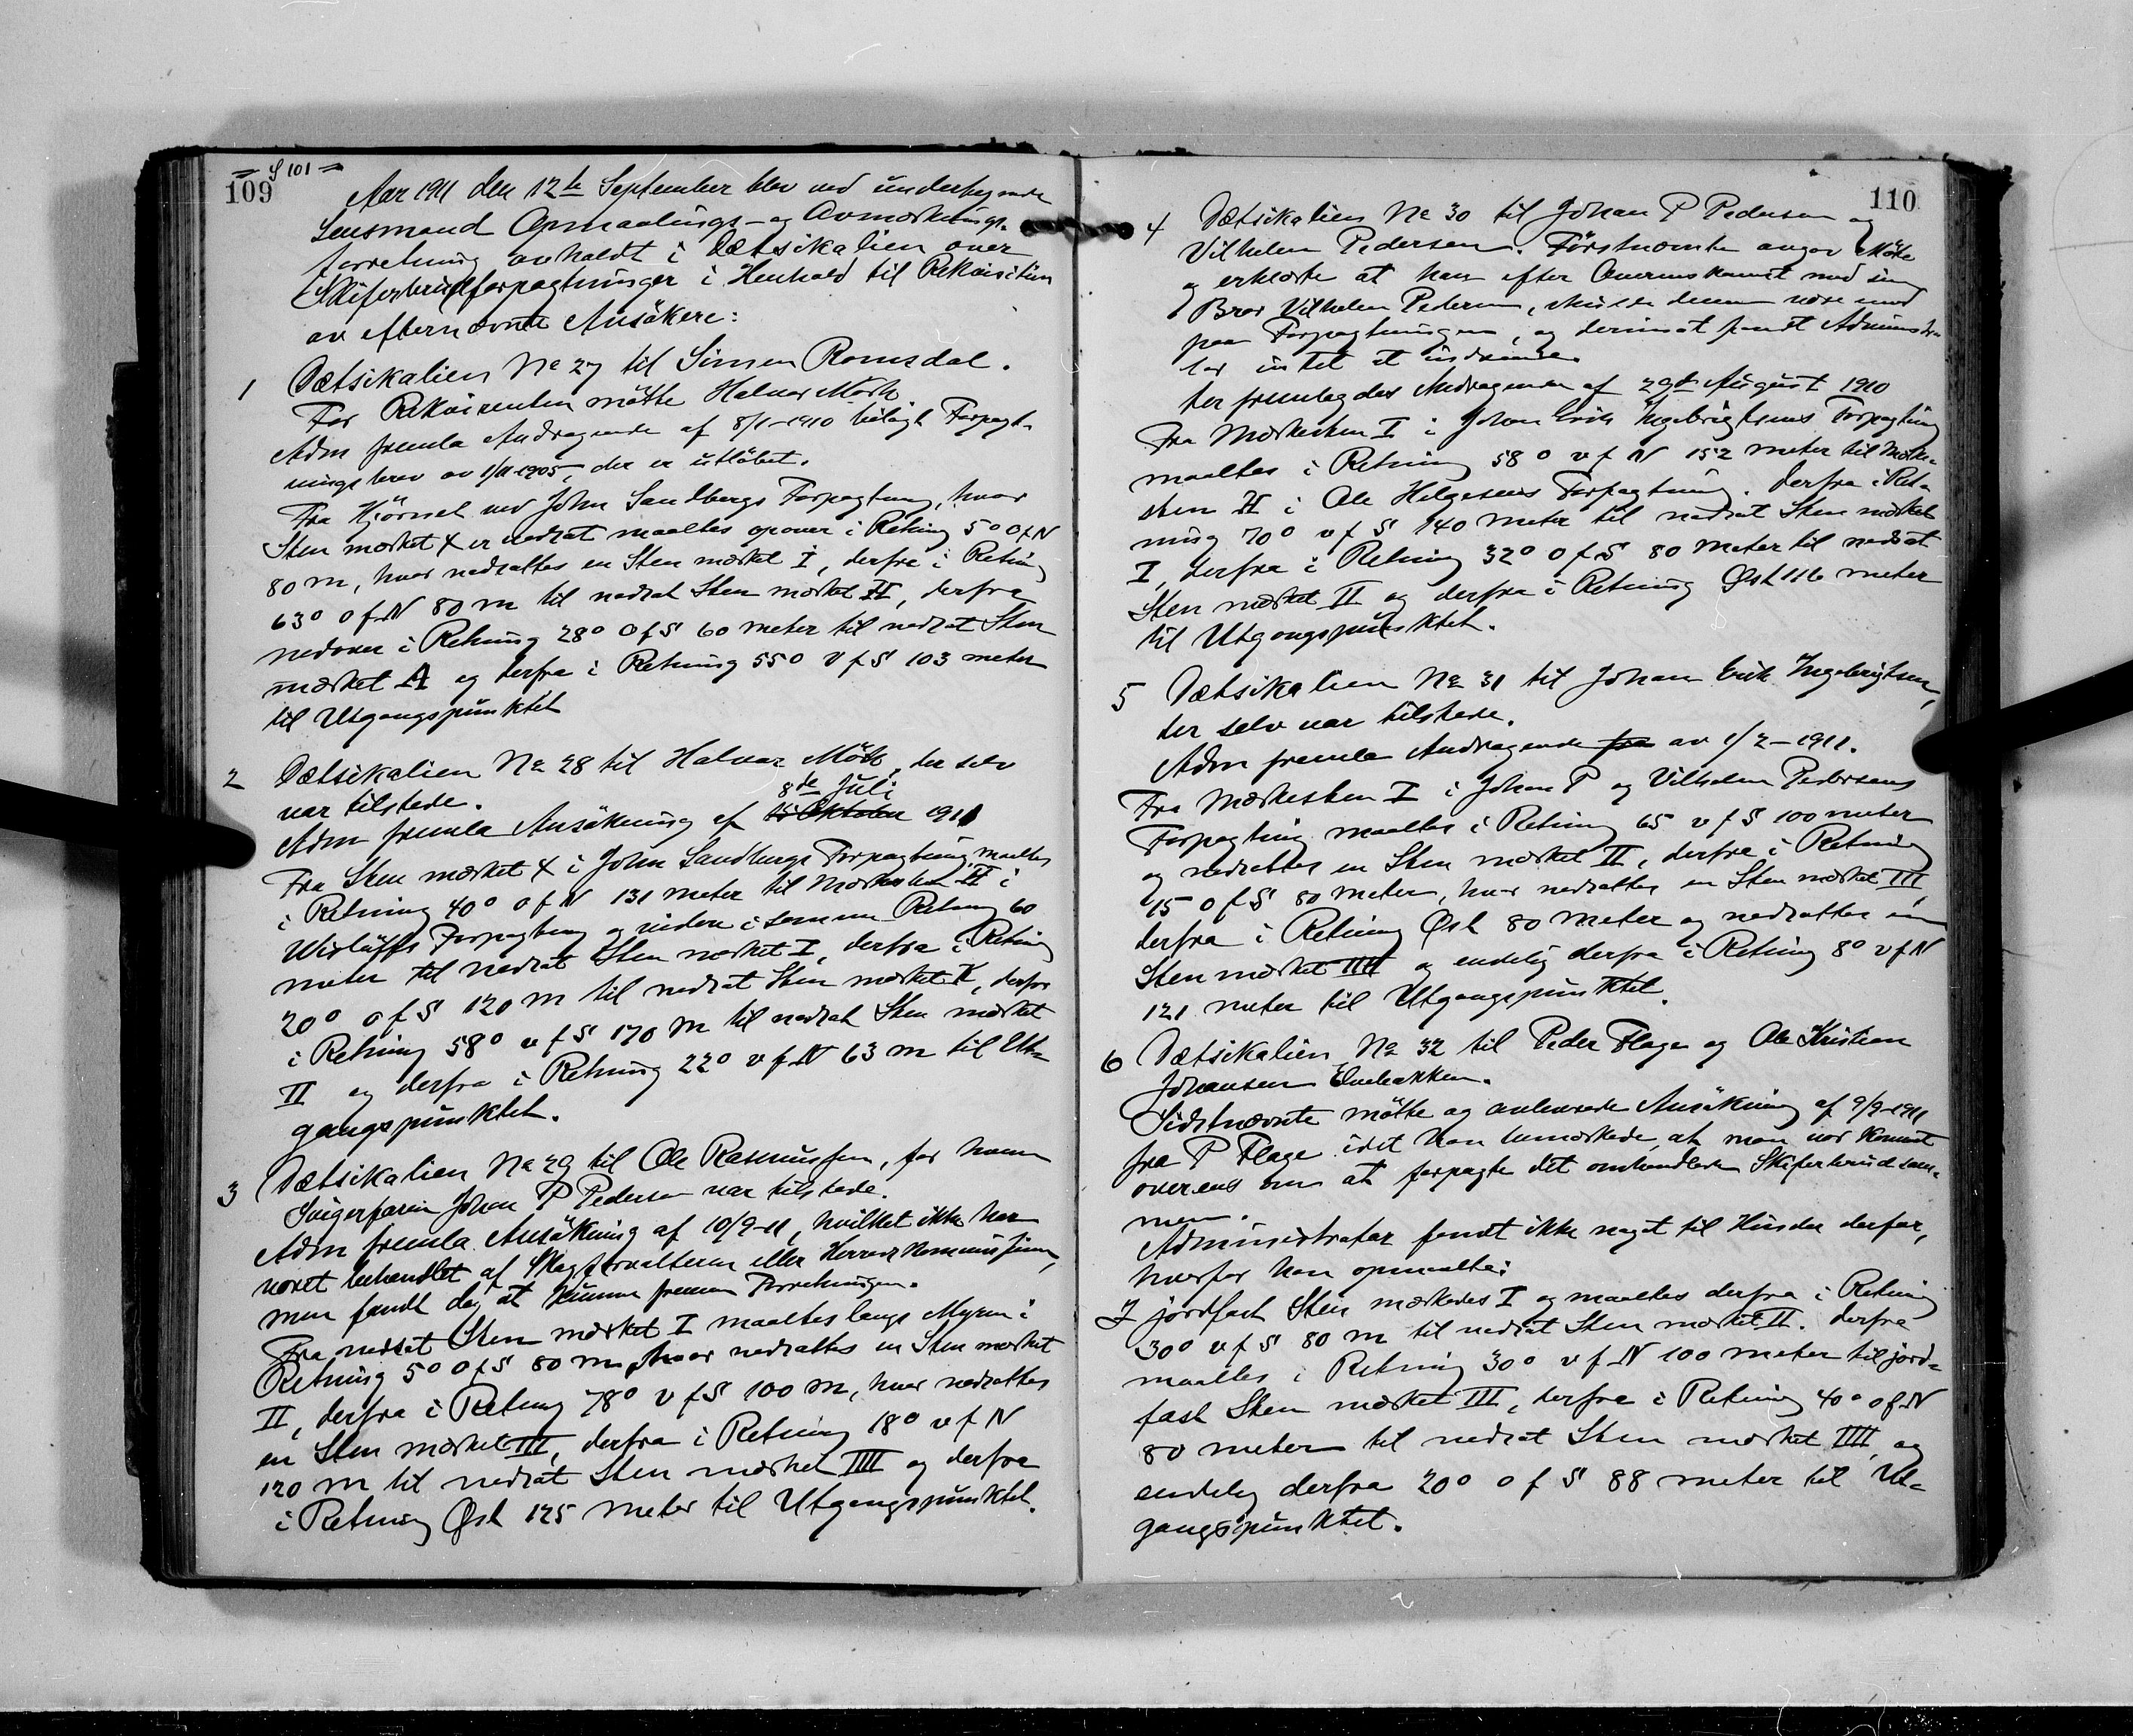 = § 101 =
109
Aar 1911 den 12te September blev ved undertegnede
Lensmand Opmaalings- og Avmerknings-
forretning avholdt i Dætsikalien over
Skiferbrudforpagtninger i Henhold til Rekvisition
av efternævnte Ansökere:
1 Dætsikalien No 27 til Simen Romsdal.
For Rekvirenten mötte Halvar Mörk
Adm fremla Andragende af 8/1-1910 bilagt Forpagt-
ningsbrev av 1/11-1905, der er utlöbet.
Fra Hjörnet ved John Sandbergs Forpagtning, hvor
Sten mærket X er nedsat maaltes opover i Retning 5° O f N
80 m, hvor nedsattes en Sten mærket I, derfra i Retning
63° O f N 80 m til nedsat Sten mærket II, derfra
nedover i Retning 28° O f S 60 meter til nedsat Sten
mærket A og derfra i Retning 55° V f S 103 meter
til Utgangspunktet
2 Dætsikalien No 28 til Halvar Mörk, der selv
var tilstede.
8de Juli
Adm fremla Ansökning af 15 Oktober 1911
Fra Sten mærket X i John Sandbergs Forpagtning maaltes
i Retning 40° O f N 131 meter til Mærkesten II i
Wisløffs Forpagtning og videre i samme Retning 60
meter til nedsat Sten mærket I, derfra i Retning
20° O f S 120 m til nedsat Sten mærket X, derfra
i Retning 58° v f S 170 m til nedsat Sten mærket
II og derfra i Retning 22° v f N 63 m til Ut-
gangspunktet.
3 Dætsikalien No 29 til Ole Rasmussen, for hvem
Svigerfaren Johan P Pedersen var tilstede.
Adm fremla Ansökning af 10/9-11, hvilket ikke har
været behandlet af Skogforvalteren eller Herredskommissionen,
men fandt dog at kunne fremme Forretningen.
Fra nedsat Sten mærket I maaltes langs Myren i
Retning 5° O f S 80 m, hvor nedsattes en Sten mærket
II, derfra i Retning 78° V f S 100 m, hvor nedsattes
en Sten mærket III, derfra i Retning 18° v f N
120 m til nedsat Sten mærket IIII og derfra
i Retning Øst 125 meter til Utgangspunktet.
110
4 Dætsikalien No 30 til Johan P Pedersen og
Vilhelm Pedersen. Förstnævnte angav Möte
og erklærte at han efter Overenskomst med sin
Bror Vilhelm Pedersen, skulde denne være med
paa Forpagtningen, og derimot fandt Administra-
tor intet at indvende
Der fremlagdes Andragende af 29de August 1910
Fra Mærkesten I i Johan Erik Ingebrigtsens Forpagtning
maaltes i Retning 58° v f N 152 meter til Mærke-
sten II i Ole Helgesens Forpagtning. Derfra i Ret-
ning 70° v f S 140 meter til nedsat Sten mærket
I, derfra i Retning 32° O f S 80 Meter til nedsat
Sten mærket II og derfra i Retning Øst 116 meter
til Utgangspunktet.
5 Dætsikalien No 31 til Johan Erik Ingebrigtsen,
der selv var tilstede.
Adm fremla Andragende fra av 1/2-1911.
Fra Mærkesten I i Johan P og Vilhelm Pedersens
Forpagtning maaltes i Retning 65 v f S 100 meter
og nedsattes en Sten mærket II, derfra i Retning
15 O f S 80 meter, hvor nedsattes en Sten mærket III,
derfra i Retning Øst 80 meter og nedsattes en
Sten mærket IIII og endelig derfra i Retning 8° v f N
121 meter til Utgangspunktet.
6 Dætsikalien No 32 til Peder Flage og Ole Kristian
Johansen Elvebakken.
Sidstnævnte mötte og Ansökning af 9/9-1911
fra P Flage idet han bemærkede, at man var kommet
overens om at forpagte det omhandlede Skiferbrud sam-
men.
Administrator fandt ikke noget til Hinder derfor,
hvorfor han opmaalte:
I jordfast Sten mærkedes I og maaltes derfra i Retning
30° v f S 80 m til nedsat Sten mærket II. derfra
maaltes i Retning 30° v f N 100 meter til jord-
fast Sten mærket III, derfra i Retning 40° o f N
80 meter til nedsat Sten mærket IIII og
endelig derfra 20° o f S 88 meter til Ut-
gangspunktet.